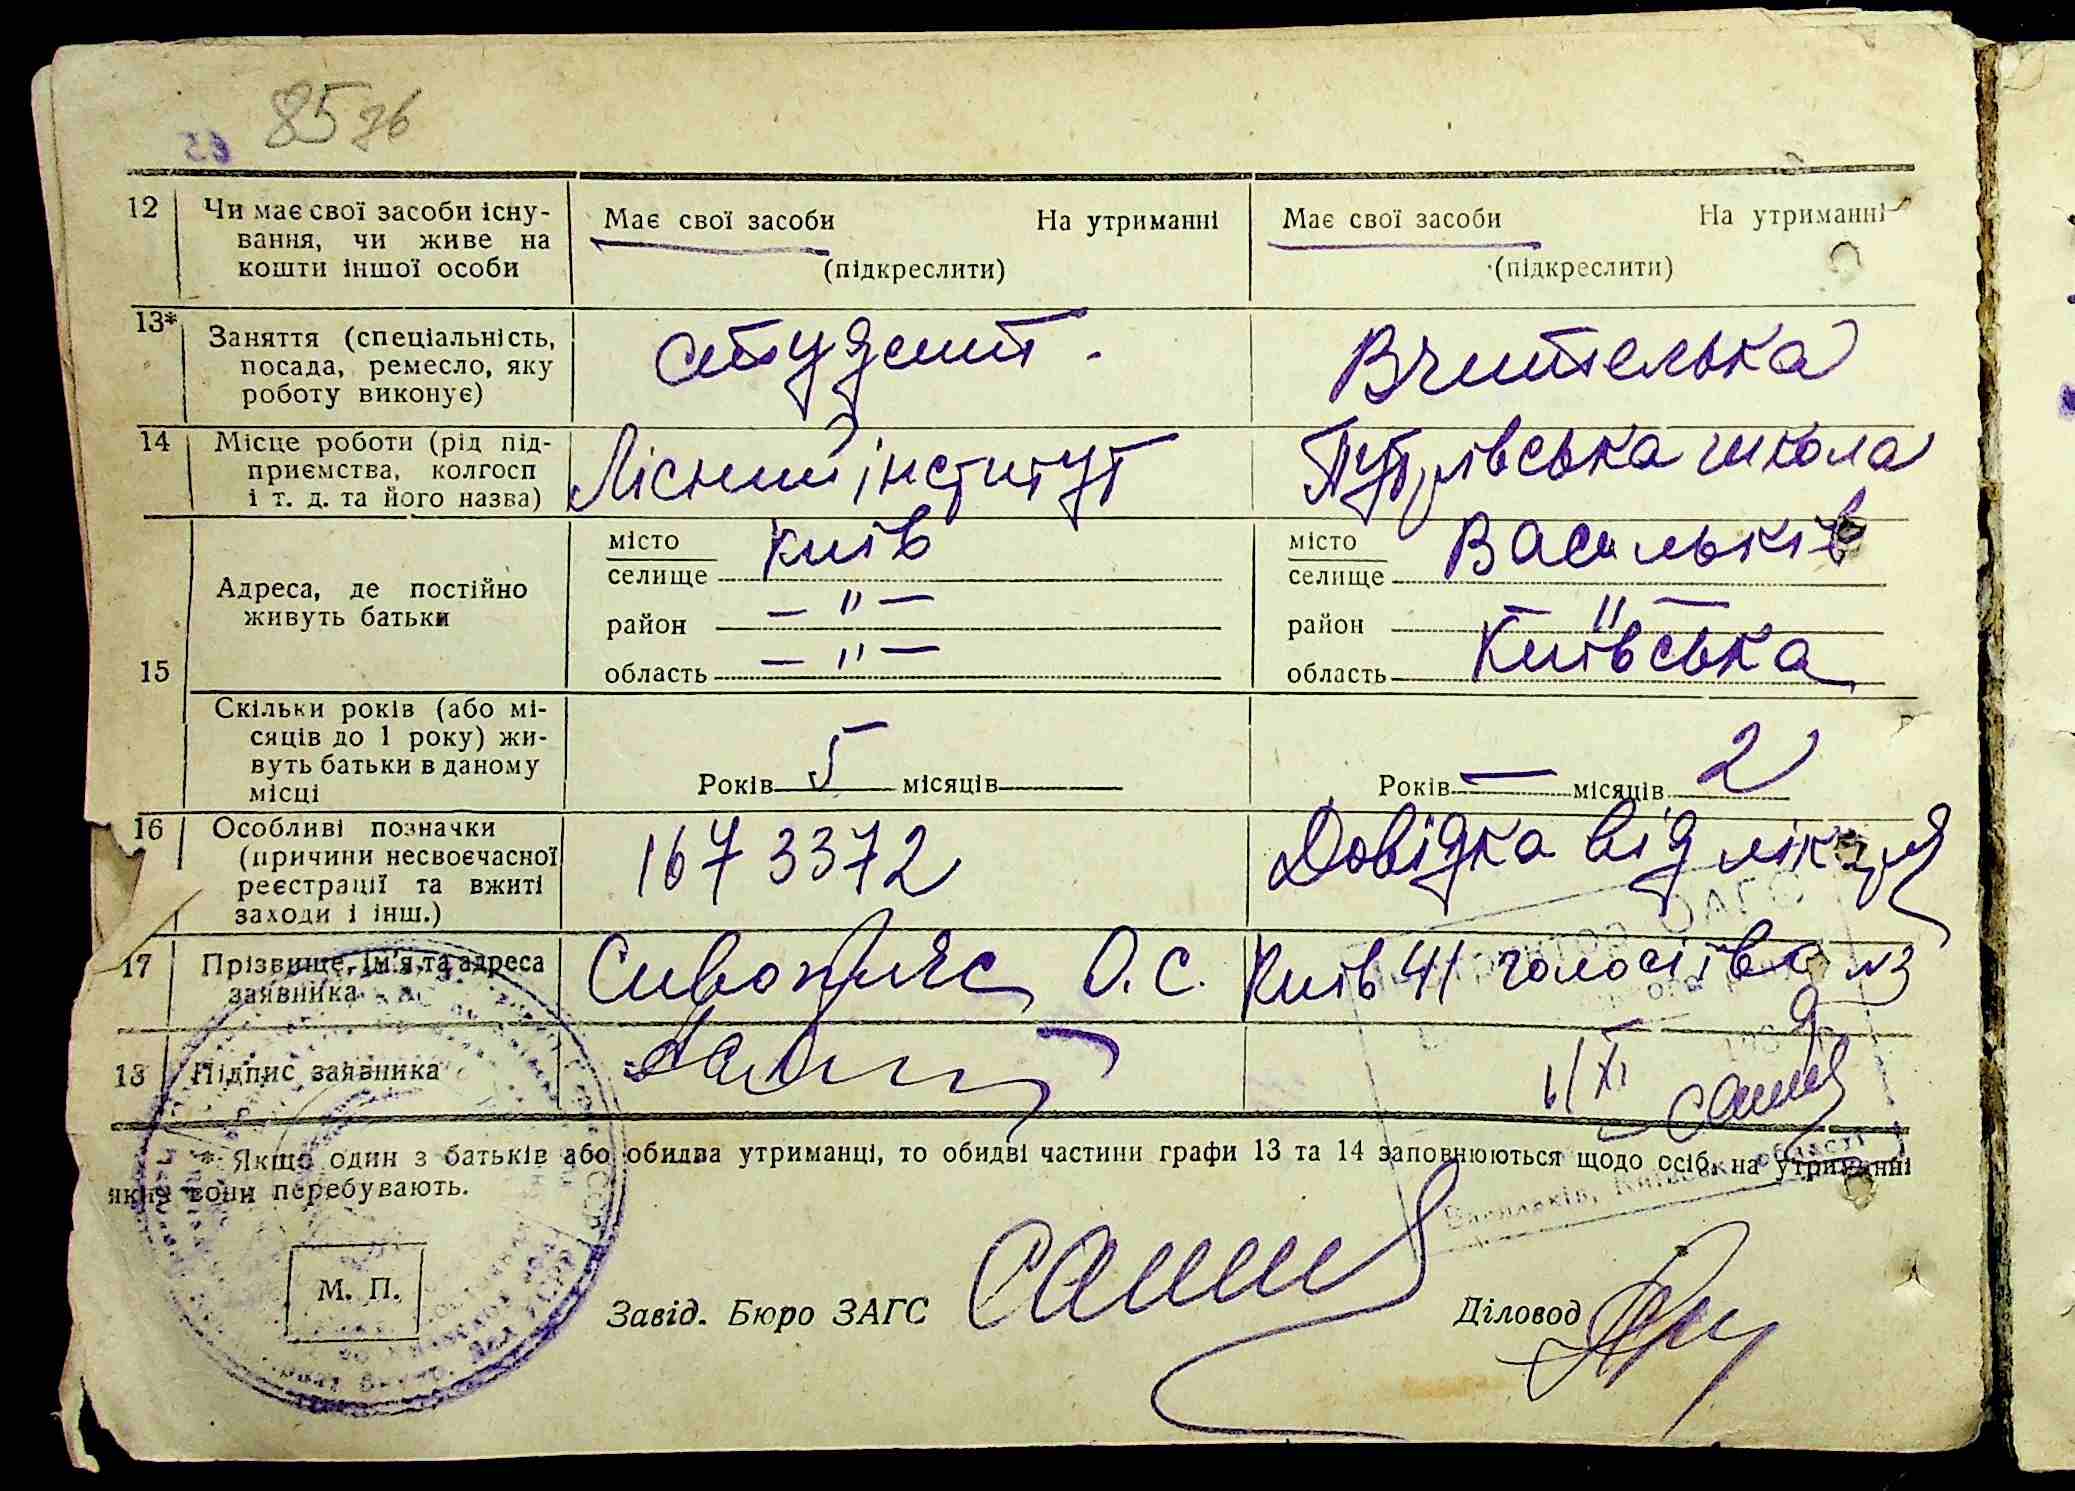 85 зв
12 Чи має свої засоби існу- Має свої засоби На утриманні Має свої засоби На утриманні
вання, чи живе на
кошти іншої особи (підкреслити) (підкреслити)
13*
Заняття (спеціальність, студент. Вчителька
посада, ремесло, яку
роботу виконує)
14 Місце роботи (рід під- Лісний інститут школа
приємства, колгосп
і т. д. та його назва)
місто Київ місто Васильків
селище селище
Адреса, де постійно
живуть батьки
район — " — район — " —
15 область — " — область Київська
Скільки років (або мі-
сяців до 1 року) жи-
вуть батьки в даному Років 5 місяців Років — місяців 2
місці
16 Особливі позначки 167 3372 Довідка від лікаря
(причини несвоєчасної
реєстрації та вжиті
заходи і інш.)
17 Прізвище, ім'я та адреса О. С. Київ 41 голосіїво №3
заявника
18 Підпис заявника
6/XI
* Якщо один з батьків або обидва утриманці, то обидві частини графи 13 та 14 заповнюються щодо осіб, на утриманні
яких вони перебувають.
Васильків, Київськ. області
М. П.
Завід. Бюро ЗАГС Діловод